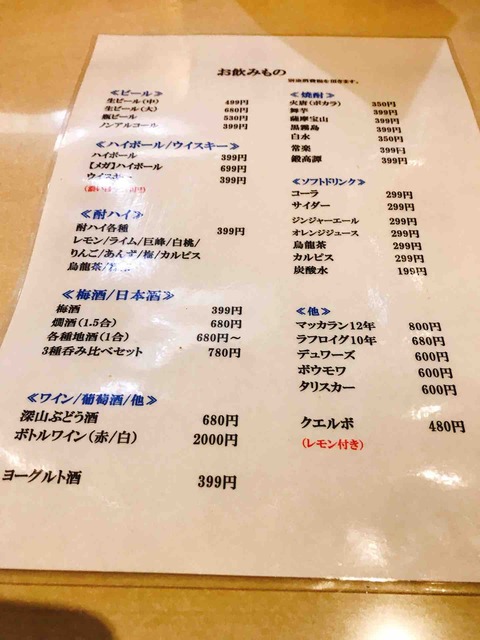 お飲みもの
別途消費税を頂きます。
≪ビール≫
生ビール(中) 499円
生ビール(大) 680円
瓶ビール 530円
ノンアルコール 399円
≪ハイボール/ウイスキー≫
ハイボール 399円
[メガ]ハイボール 699円
ウイスキー 399円
≪酎ハイ≫
酎ハイ各種 399円
レモン/ライム/巨峰/白桃/
りんご/あんず/梅/カルピス
烏龍茶/
≪梅酒/日本酒≫
梅酒 399円
燗酒(1.5合) 680円
各種地酒(1合) 680円～
3種呑み比べセット 780円
≪ワイン/葡萄酒/他≫
深山ぶどう酒 680円
ボトルワイン(赤/白) 2000円
ヨーグルト酒 399円
≪焼酎≫
火唐(ポカラ) 350円
舞芋 399円
薩摩宝山 399円
黒霧島 399円
白水 350円
常楽 399円
鍛高譚 399円
≪ソフトドリンク≫
コーラ 299円
サイダー 299円
ジンジャーエール 299円
オレンジジュース 299円
烏龍茶 299円
カルピス 299円
炭酸水 199円
≪他≫
マッカラン12年 800円
ラフロイグ10年 680円
デュワーズ 600円
ボウモワ 600円
タリスカー 600円
クエルボ 480円
(レモン付き)